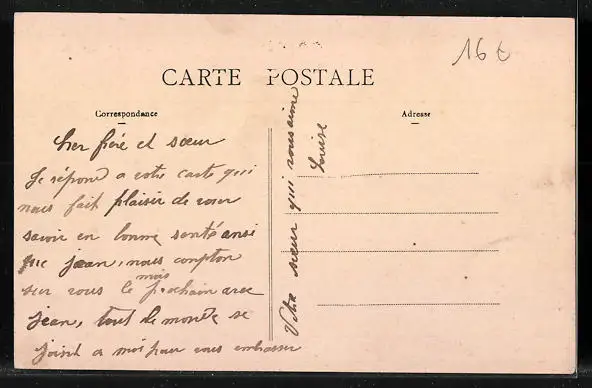 16 €
CARTE POSTALE
Correspondance
Adresse
cher frère et sœur
Je répond a votre carte qui
nous fait plaisir de vous
savoir en bonne santé ansi
que jean, nous compton
sur vous le mois prochain avec
jean, tout le monde se
joint a moi pour vous embrasser
Votre sœur qui vous aime
Louise